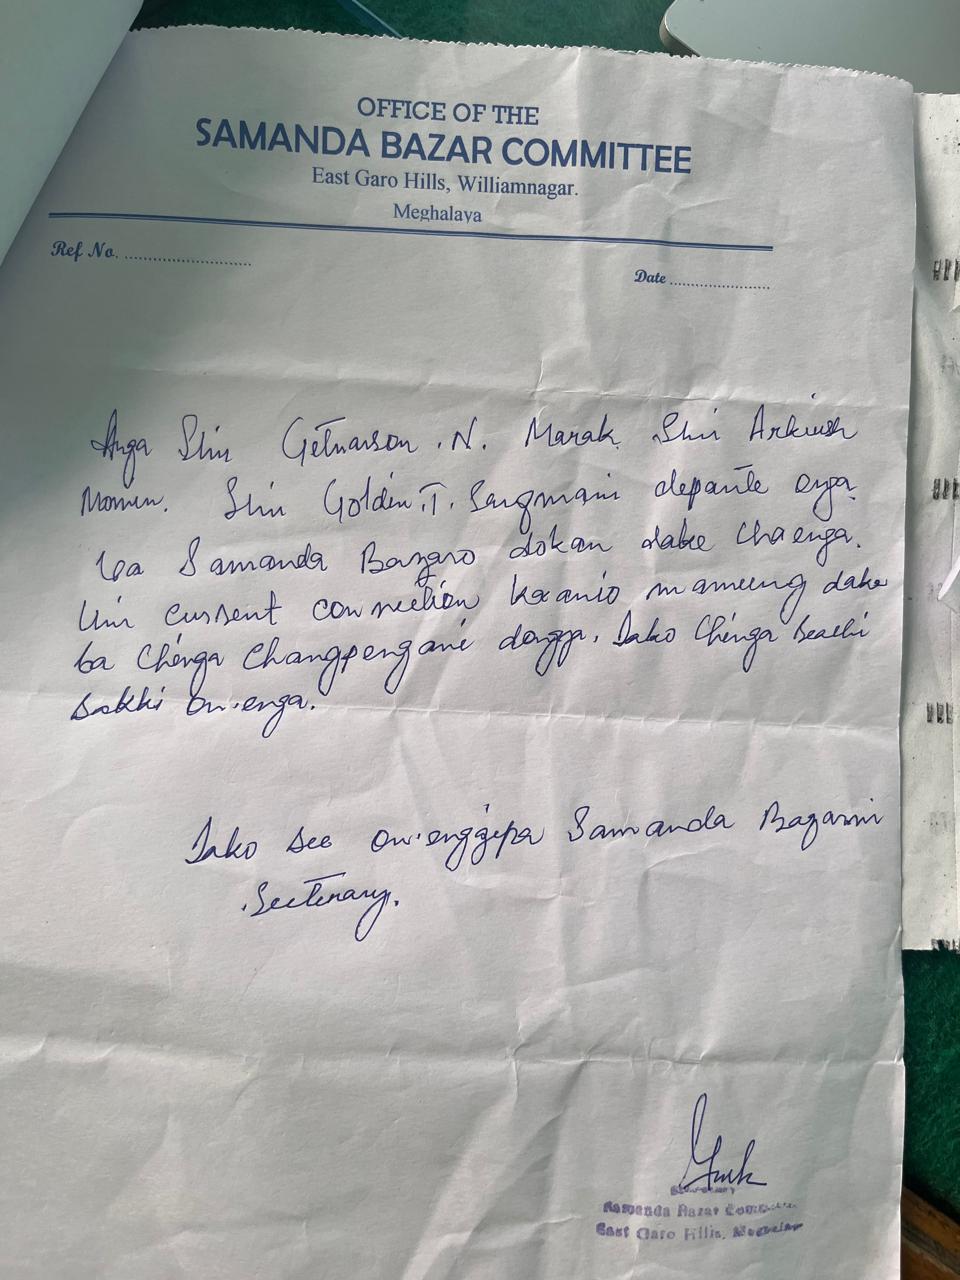 OFFICE OF THE
SAMANDA BAZAR COMMITTEE
East Garo Hills, Williamnagar.
Meghalaya
Ref No. ............................
Date ............................
Anga Shri Getnarson .N. Marak Shri Arkush
Momin. Shri Goldin .T. Sangmani depante onga.
Ua Samanda Bazaro dokan dake chaenga.
Uni current connection ka·anio mamung dake
ba Chinga Champengani dongja. Iako Chinga
sakki on·enga.
Iako see on·enggipa Samanda Bazarni
Secretary.
Secretary
Samanda Bazar
East Garo Hills, Meghalaya